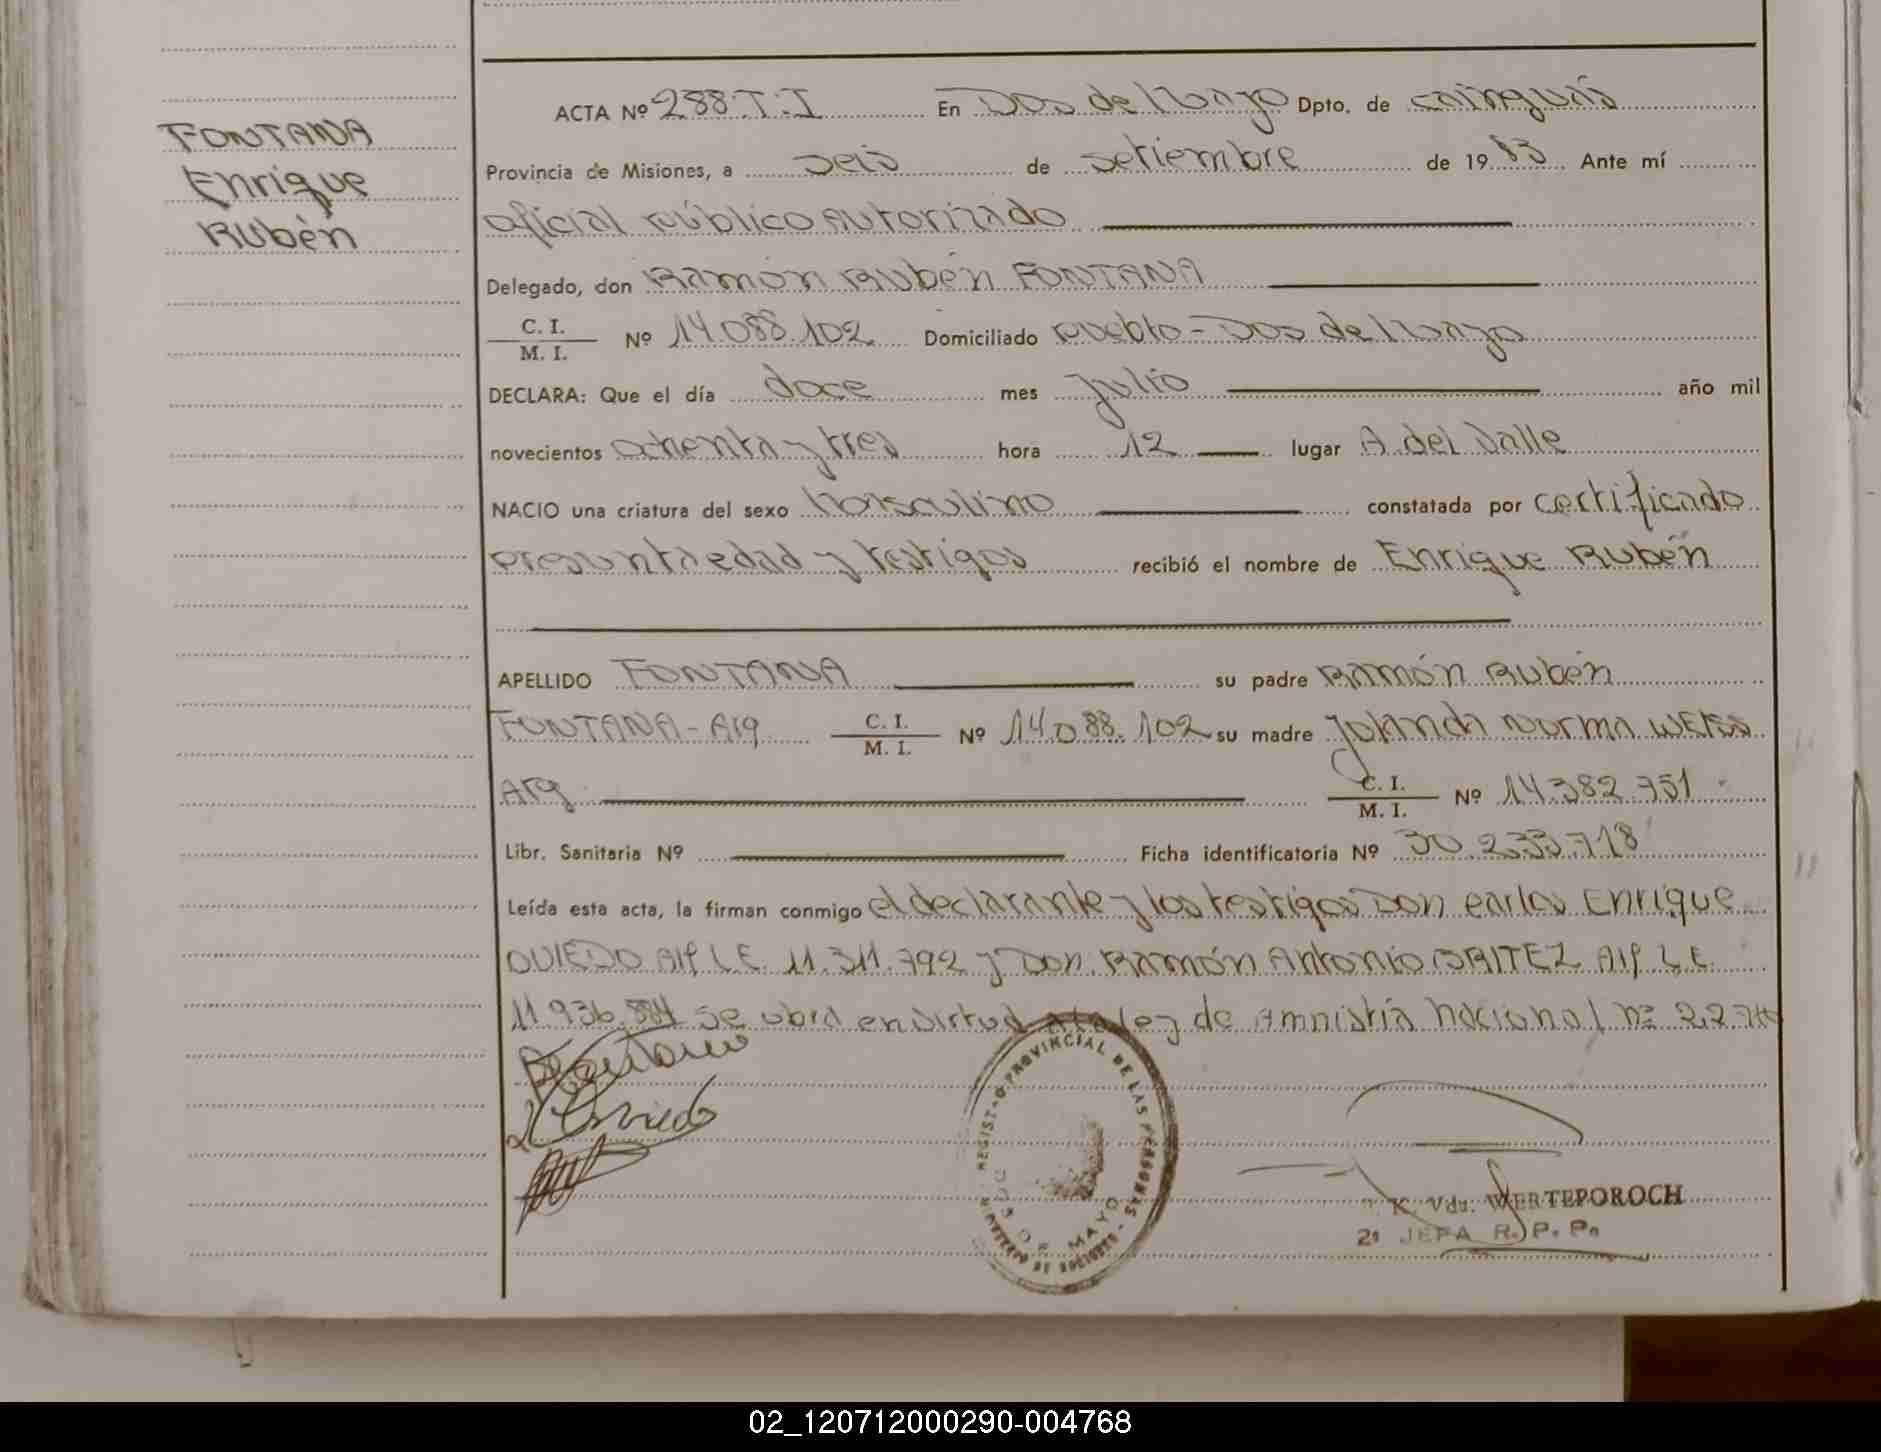 FONTANA
Enrique
Rubén
ACTA Nº 288.T.I En Dos de Mayo Dpto. de Cainguás
Provincia de Misiones, a seis de setiembre de 1983 Ante mí
oficial público autorizado
Delegado, don Ramón Rubén FONTANA
C. I. / M. I. Nº 14.088.102 Domiciliado Pueblo - Dos de Mayo
DECLARA: Que el día doce mes julio año mil
novecientos ochenta y tres hora 12 lugar A. del Valle
NACIO una criatura del sexo Masculino constatada por certificado
presunta edad y testigos recibió el nombre de Enrique Rubén
APELLIDO FONTANA su padre Ramón Rubén
FONTANA - Arg C. I. / M. I. Nº 14.088.102 su madre Yolanda Norma WEISS
Arg C. I. / M. I. Nº 14.382.751
Libr. Sanitaria Nº Ficha identificatoria Nº 30.233.718
Leída esta acta, la firman conmigo el declarante y los testigos Don Carlos Enrique
OVIEDO Arg L.E. 11.311.792 y Don Ramón Antonio BRITEZ Arg L.E.
11.936.884 se labra en virtud a la ley de Amnistía Nacional Nº
REGISTRO PROVINCIAL DE LAS PERSONAS - MINISTERIO DE GOBIERNO
DOS DE MAYO
K. Vda. WERTEPOROCH
2º JEFA R. P. P.
02_120712000290-004768